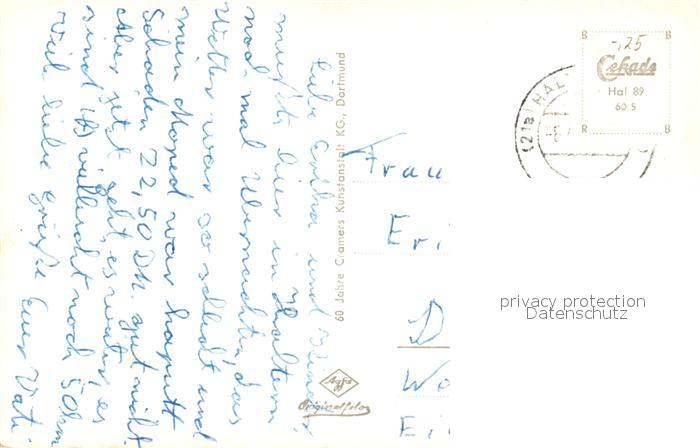 Liebe Erika und Kinder
mußte hier in Haltern
noch mal Übernachten, das
Wetter war so schlecht und
mein Moped war kaputt
Schaden 22,50 DM. gut nicht
Aber jetzt geht es weiter, es
sind (A) vielleicht noch 50 km
Viele liebe Grüße Euer Vati.
60 Jahre Cramers Kunstanstalt KG., Dortmund
Agfa
Originalfoto
B B
-,25
Cekade
Hal 89
60 5
R R
(21a) HAL
Frau
Eri
D
Wo
Ei
privacy protection
Datenschutz